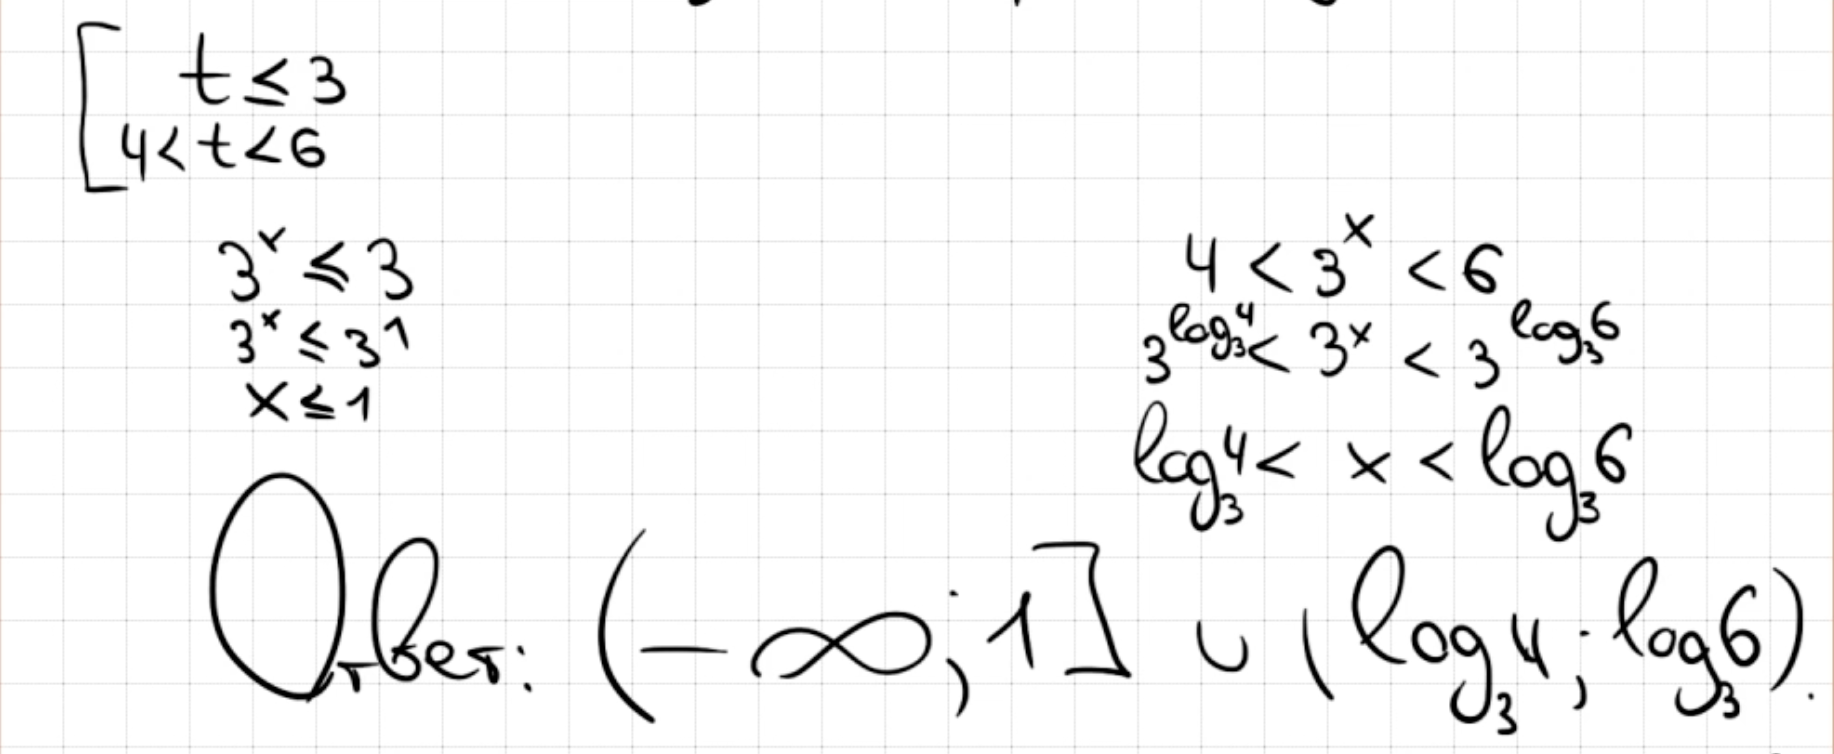 [ t ≤ 3
4 < t < 6
3ˣ ≤ 3
3ˣ ≤ 3¹
x ≤ 1
4 < 3ˣ < 6
3^(log₃4) < 3ˣ < 3^(log₃6)
log₃4 < x < log₃6
Ответ: (-∞; 1] ∪ (log₃4; log₃6).